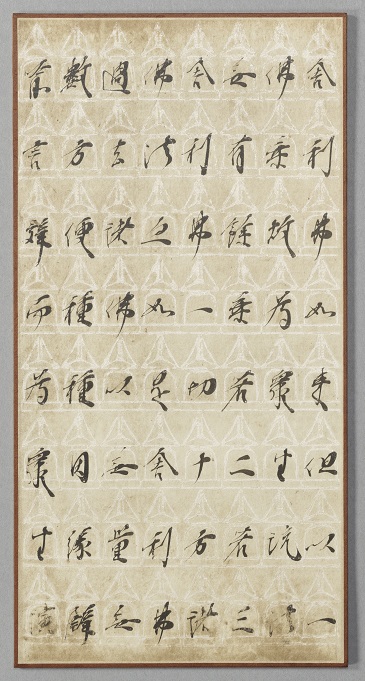 舍利弗如來但以一
佛乘故為衆生說法
無有餘乘若二若三
舍利弗一切十方諸
佛法亦如是舍利弗
過去諸佛以無量無
數方便種種因緣譬
喻言辭而為衆生演